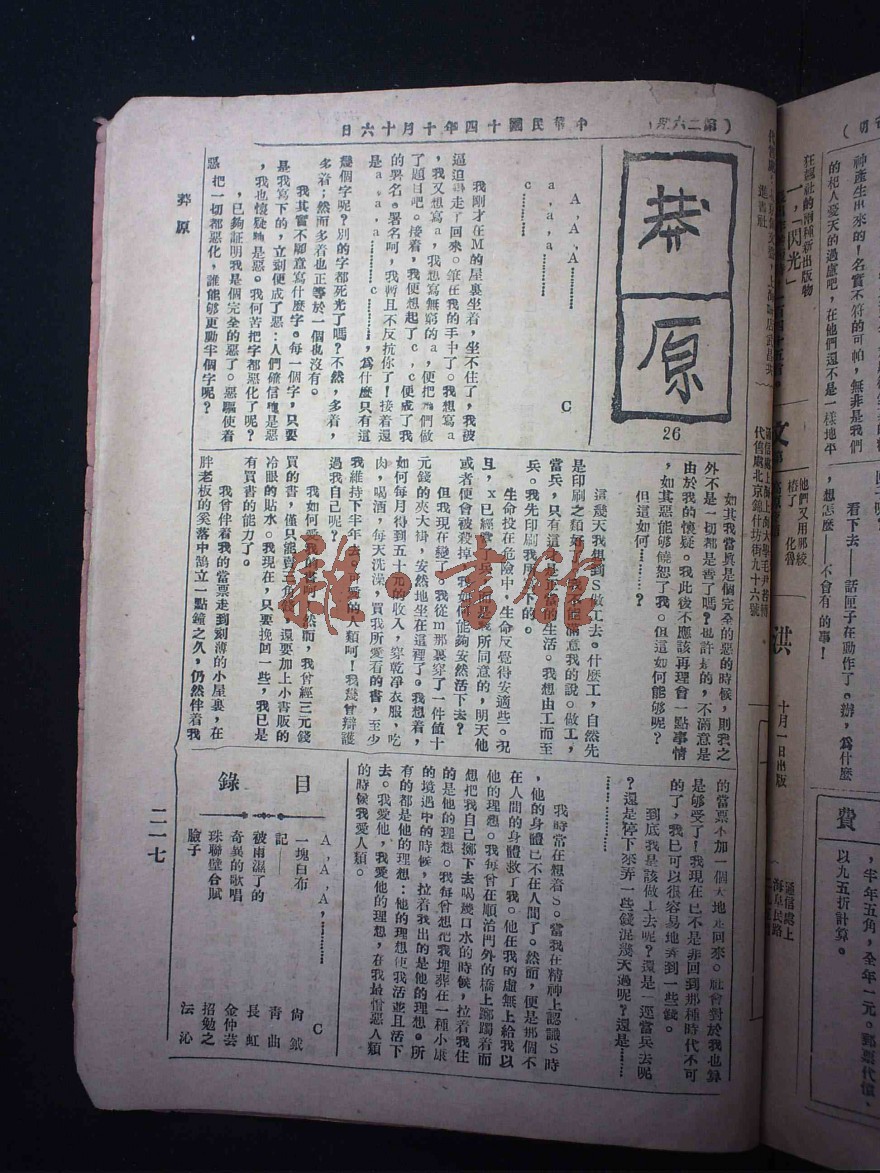 中華民國十四年十月十六日
莽原
26
A,A,A…………
C
a,a,a…………
c…………
我剛才在M的屋裏坐着，坐不住了，我被
逼迫得走了回來。筆在我的手中了。我想寫a
，我又想寫a，我想寫無窮的a，便把牠們做
了題目吧。接着，我便想起了c，c便成了我
的署名。署名呵，我暫且不反抗你了！接着還
是a,a,a…………c…………，爲什麼只有這
幾個字呢？別的字都死光了嗎？不然，多着，
多着；然而多着也正等於一個也沒有。
我其實不願意寫什麼字。每一個字，只要
是我寫下的，立刻便成了惡：人們確信牠是惡
，我也懷疑牠是惡。我何苦把字都惡化了呢？
，已夠証明我是個完全的惡了。惡驅使着
惡把一切都惡化，誰能够更動半個字呢？
如其我當眞是個完全的惡的時候，則我之
外不是一切都是善了嗎？也許是的，不滿意是
由於我的懷疑。我此後不應該再理會一點事情
，如其惡能够饒恕了我。但這如何能够呢？
但這如何…………？
這幾天我想到S做工去。什麼工，自然先
是印刷之類好
當兵，只有這 的生活。我想由工而至
兵。我先印刷我所
生命投在危險中，生命反覺得安適些。況
且，x已經當了兵，而是我所同意的，明天他
或者便會被殺掉，我如何能夠安然活下去？
但我現在變了。我從m那裏穿了一件値十
元錢的夾大褂，安然地坐在這裡了。我想着，
如何每月得到五十元的收入，穿乾凈衣服，吃
肉，喝酒，每天洗澡，買我所愛看的書，至少
我維持下半年去。可憐的人類呵！我幾曾辯護
過我自己呢？
我如何愛我的書呵，然而，我曾經三元錢
買的書，僅只能賣三角錢，還要加上小書販的
冷眼的貼水。我現在，只要挽囘一些，我已是
有買書的能力了。
我曾伴着我的當票走到刻薄的小屋裏，在
胖老板的奚落中鵠立一點鐘之久，仍然伴着我
的當票不加一個大地走回來。社會對於我也算
是够受了！我現在已不是非回到那種時代不可
的了，我已可以很容易地弄到一些錢。
到底我是該做工去呢？還是一逕當兵去呢
？還是停下來弄一些錢混幾天過呢？還是……
…………
我時常在想着S。當我在精神上認識S時
，他的身體已不在人間了。然而，便是那個不
在人間的身體救了我。他在我的虛無上給我以
他的理想。我每曾在順治門外的橋上躑躅着而
想把我自己擲下去喝幾口水的時候，拉着我住
的是他的理想。我每曾想把我埋葬在一種小康
的境遇中的時候，拉着我出的是他的理想。所
有的都是他的理想：他的理想使我活並且活下
去。我愛他，我愛他的理想，在我最憎惡人類
的時候我愛人類。
目錄
A,A,A,………… C
一塊白布 尙鉞
記—— 靑曲
被雨濕了的 長虹
奇異的歌唱 金仲芸
珠聯璧合賦 招勉之
臉子 沄沁
莽原
二一七
狂飆社的兩種新出版物
一，「閃光」
神產生出來的！名實不符的可怕，無非是我們
的杞人憂天的過慮吧，在他們還不是一樣地平
代售處北京錦什坊街九十六號
他們又用那絞
化魯
十月一日出版
，想怎麽——不會有的事！
看下去——話匣子在動作了。辦，爲什麼
費
，半年五角，全年一元。郵票代價，
以九五折計算。
雜·書館